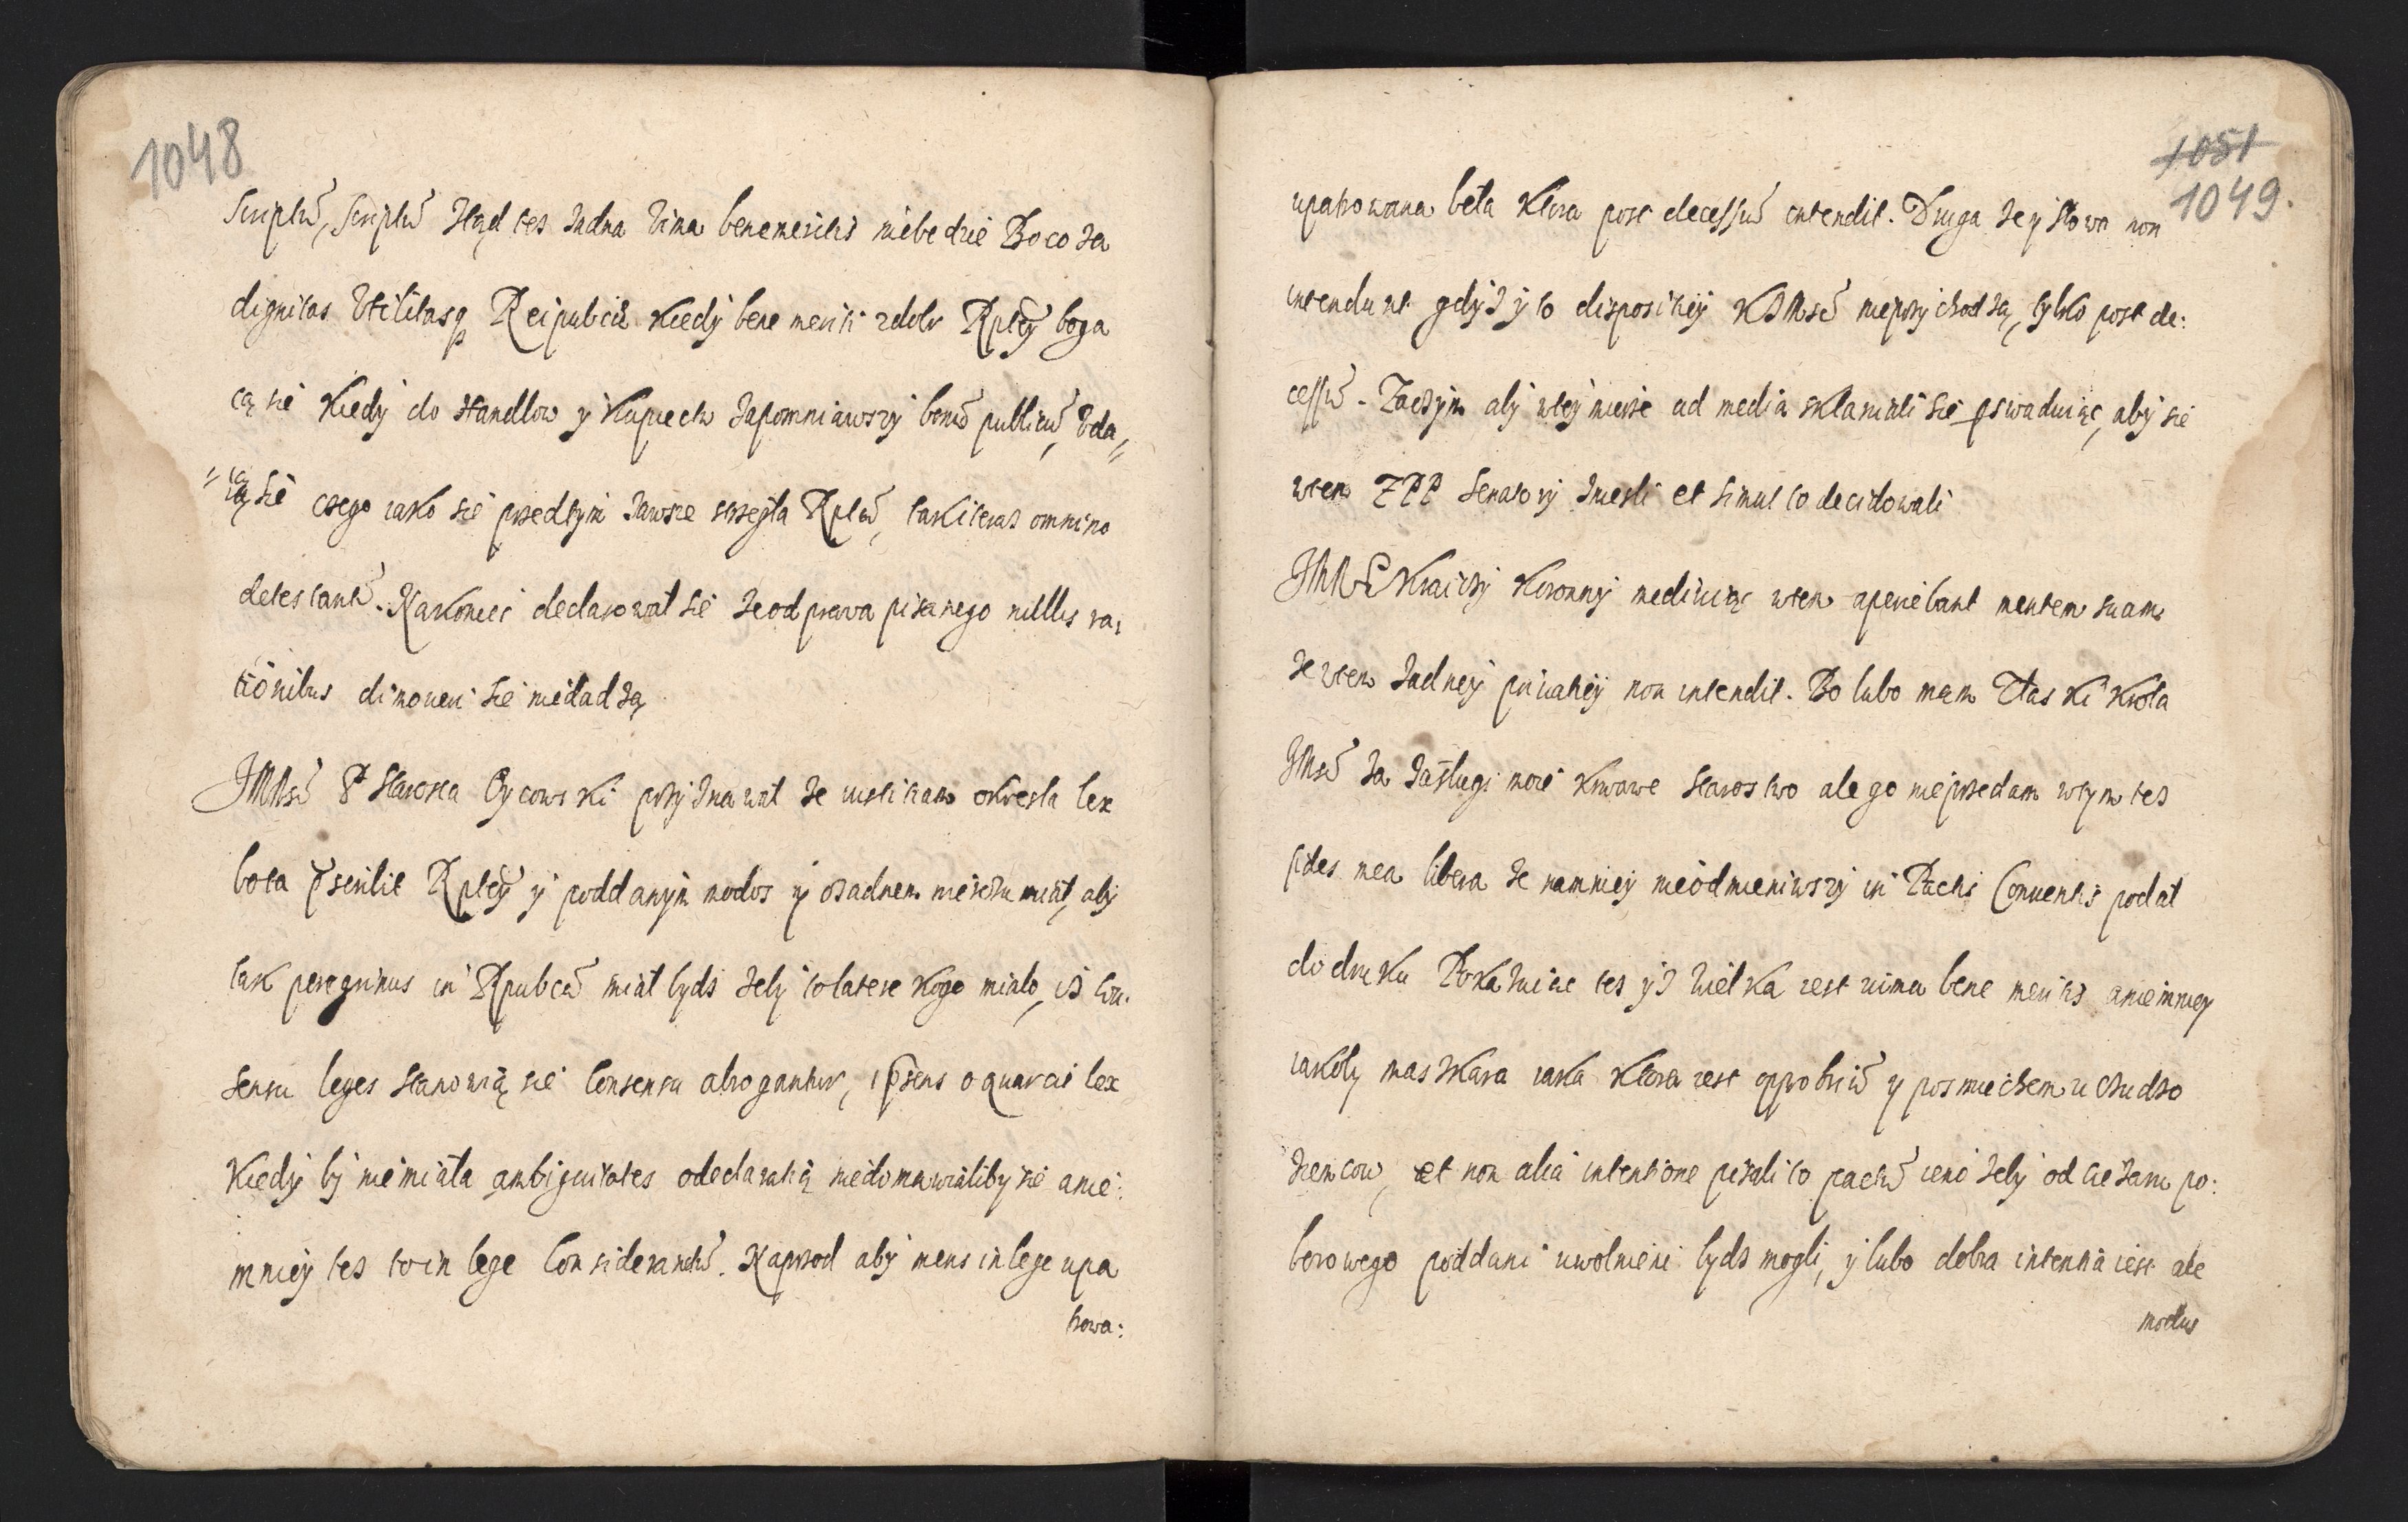 1048
Scriptũ, Scriptũ Ztąd tes zadna Rima benemeritis niebedzie Bo co za
dignitas Vtilitasq Reipublicæ Kiedÿ bene meriti z dobr Rptey boga
cą sie Kiedÿ do Handlow ÿ Kupiectw zapomniawszÿ bonũ publicũ, Vda„
„ią sie czego iako sie przedtÿm zawsze strzegła Rptã, tak i teraz omnino
detestant. Nakoniec declarował sie ze od prawa pisanego nullis ra:
tionibus dimoueri sie niedadzą
JMMsć P Starosta Oycowski przÿznawał ze iustitiam okresla lex
ktora pscribit Rptey ÿ poddanÿm modos ÿ osadnem nieiestu miał, abÿ
tak peregrinus in Rpubcã miał bÿdz zebÿ to latere kogo mialo, iz Con:
sensu leges stanowią sie Consensu abrogantur, i psens o quarcie lex
Kiedÿ bÿ niemiała ambiguitates o declaratią niedomawialibÿ sie a nie:
mniey tes to in lege Considerandũ. Naprzod abÿ mens in lege upa
trowa:
1051
1049.
upatrowana beła Ktora post decessũ intendit. Druga ze ÿ słowa non
intendunt gdÿz ÿ to dispositiÿ KJMsci nieprzÿchodzą, tÿlko post de:
cessũ. Zaczÿm abÿ wteÿ mierze ad media skłaniali sie pswaduiąc, abÿ sie
wtem ZPP Senatorÿ zniesli et simul to decidowali
JMM P Kraiczÿ Koronnÿ mediuiąc wtem aperiebant mentem suam
ze wtem zadneÿ priuatiÿ non intendit. Bo lubo mam Łaski Krola
JMsci za zasługi moie krwawe starostwo ale go nieprzedam wtÿm tes
fides mea libera ze namnieÿ nieodmieniwszÿ in Pactis Conuentis podał
do druku Pokazuiąc tes ÿz Wielka iest ruina bene meritis a niemnieÿ
iakobÿ maszkara iaka Ktora iest opprobriũ ÿ posmiechem u Cudzo
ziemcow, et non alia intentione pisali to pactũ ieno zebÿ od ciezaru po:
borowego poddani uwolnieni bÿdz mogli, ÿ lubo dobra intentia iest ale
modus